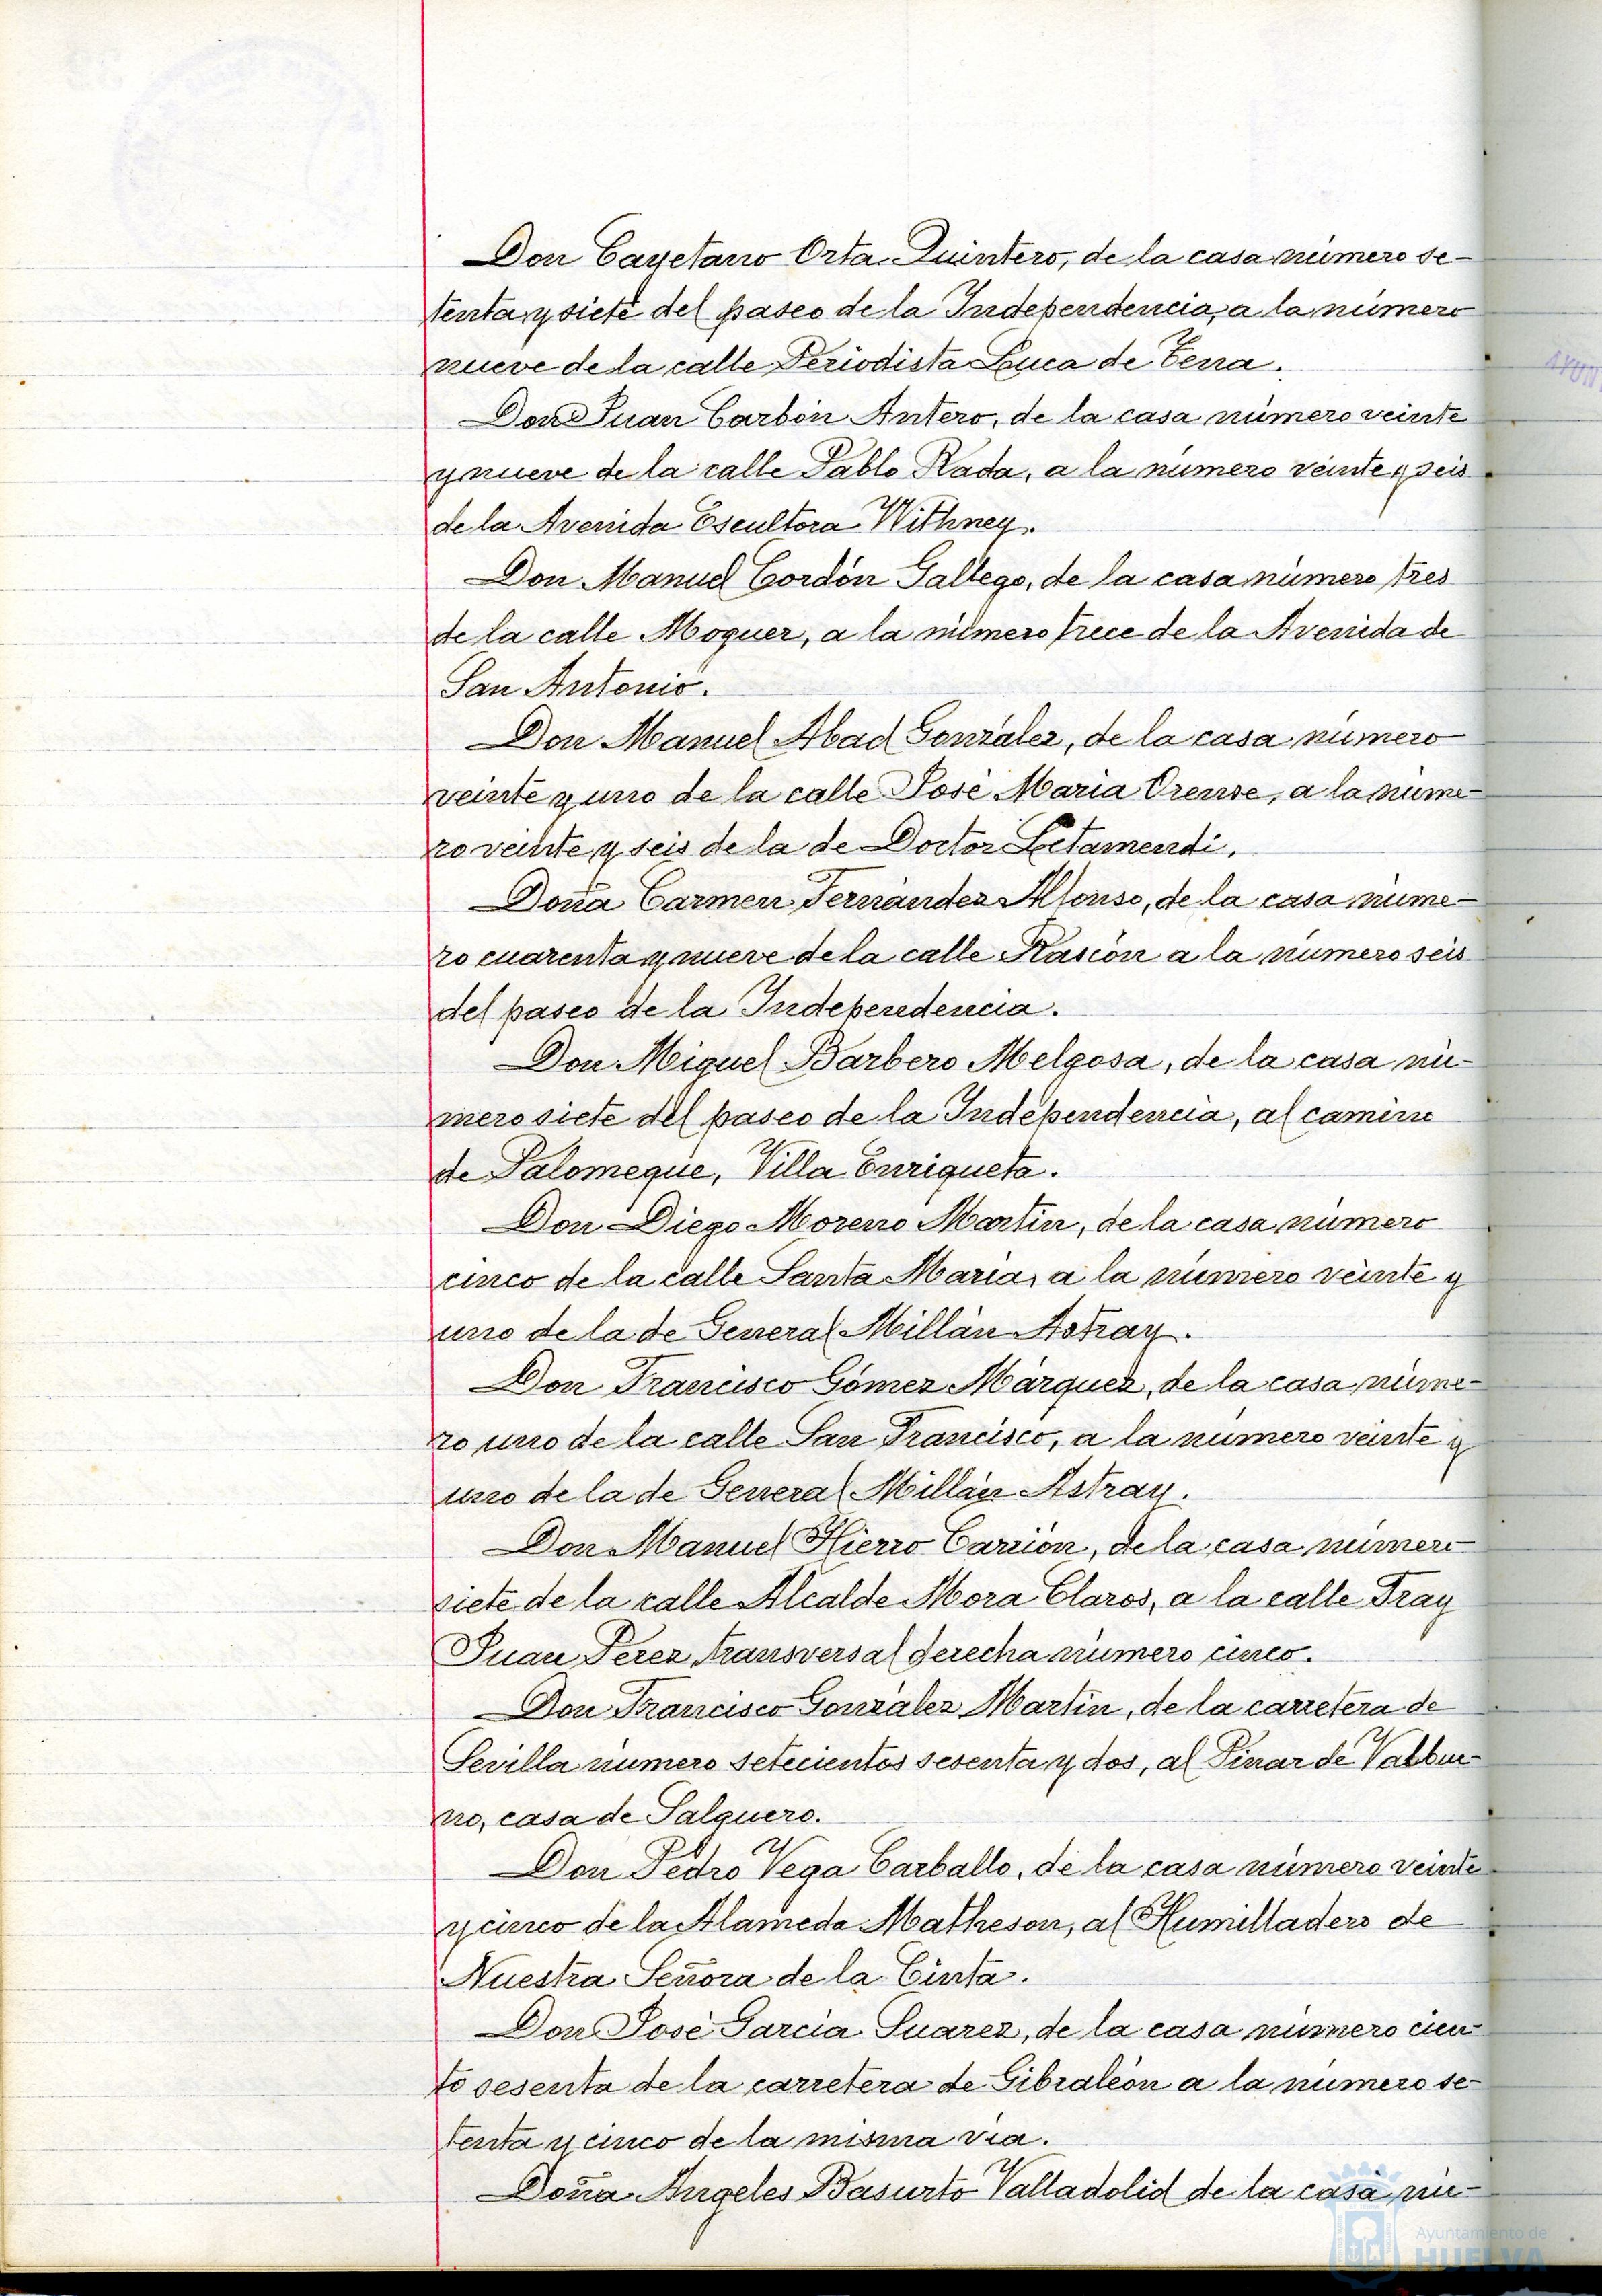 Don Cayetano Orta Quintero, de la casa número se-
tenta y siete del paseo de la Independencia, a la número
nueve de la calle Periodista Luca de Tena.
Don Juan Carbón Antero, de la casa número veinte
y nueve de la calle Pablo Rada, a la número veinte y seis
de la Avenida Escultora Withney.
Don Manuel Cordón Gallego, de la casa número tres
de la calle Moguer, a la número trece de la Avenida de
San Antonio.
Don Manuel Abad González, de la casa número
veinte y uno de la calle José Maria Orense, a la núme-
ro veinte y seis de la de Doctor Letamendi.
Doña Carmen Fernández Alfonso, de la casa núme-
ro cuarenta y nueve de la calle Rascón a la número seis
del paseo de la Independencia.
Don Miguel Barbero Melgosa, de la casa nú-
mero siete del paseo de la Independencia, al camino
de Palomeque, Villa Enriqueta.
Don Diego Moreno Martin, de la casa número
cinco de la calle Santa Maria, a la número veinte y
uno de la de General Millán Astray.
Don Francisco Gómez Márquez, de la casa núme-
ro uno de la calle San Francisco, a la número veinte y
uno de la de General Millán Astray.
Don Manuel Hierro Carrión, de la casa número
siete de la calle Alcalde Mora Claros, a la calle Fray
Juan Perez transversal derecha número cinco.
Don Francisco González Martín, de la carretera de
Sevilla número setecientos sesenta y dos, al Pinar de Valbue-
no, casa de Salguero.
Don Pedro Vega Carballo, de la casa número veinte
y cinco de la Alameda Matheson, al Humilladero de
Nuestra Señora de la Cinta.
Don José Garcia Suarez, de la casa número cien-
to sesenta de la carretera de Gibraleón a la número se-
tenta y cinco de la misma via.
Doña Angeles Basurto Valladolid de la casa nú-
Ayuntamiento de
HUELVA
AYUN